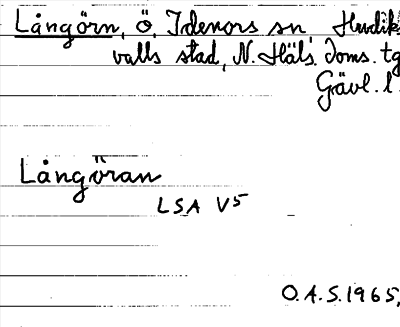 Långörn, ö. Idenors sn, Hudiks
valls stad, N. Häls. doms. tg
Gävl. l.
Långöran
LSA V5
O.A.S. 1965,